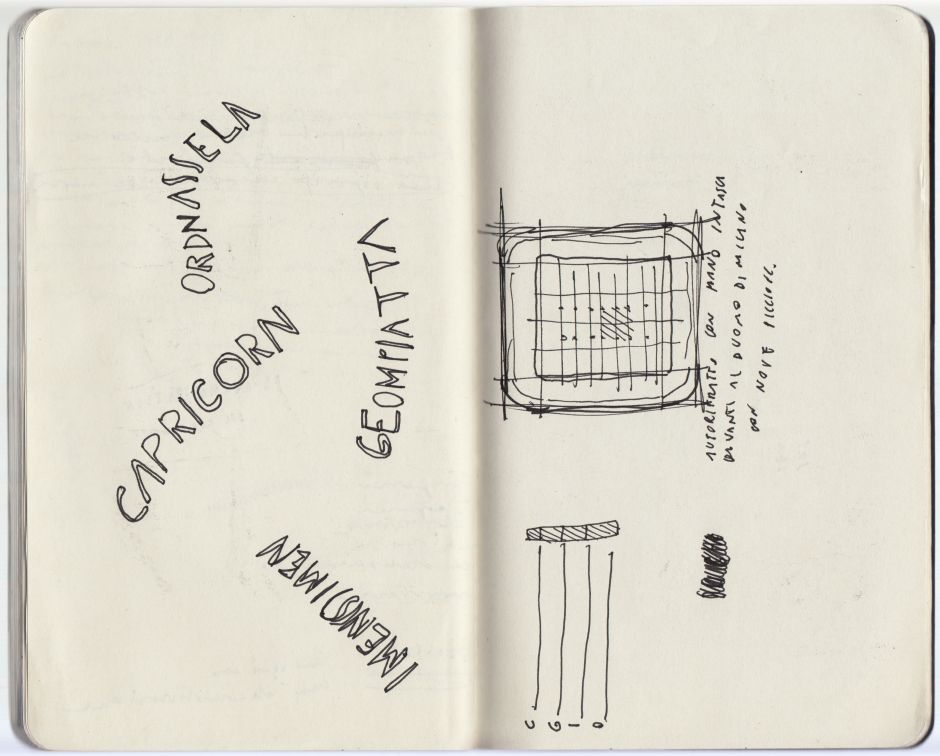 ORDNASSELA
CAPRICORN
GEOMPIATTA
IMENSSIMEN
AUTORITRATTO CON MANO IN TASCA
DAVANTI AL DUOMO DI MILANO
CON NOVE PICCIONI.
C
G
I
O